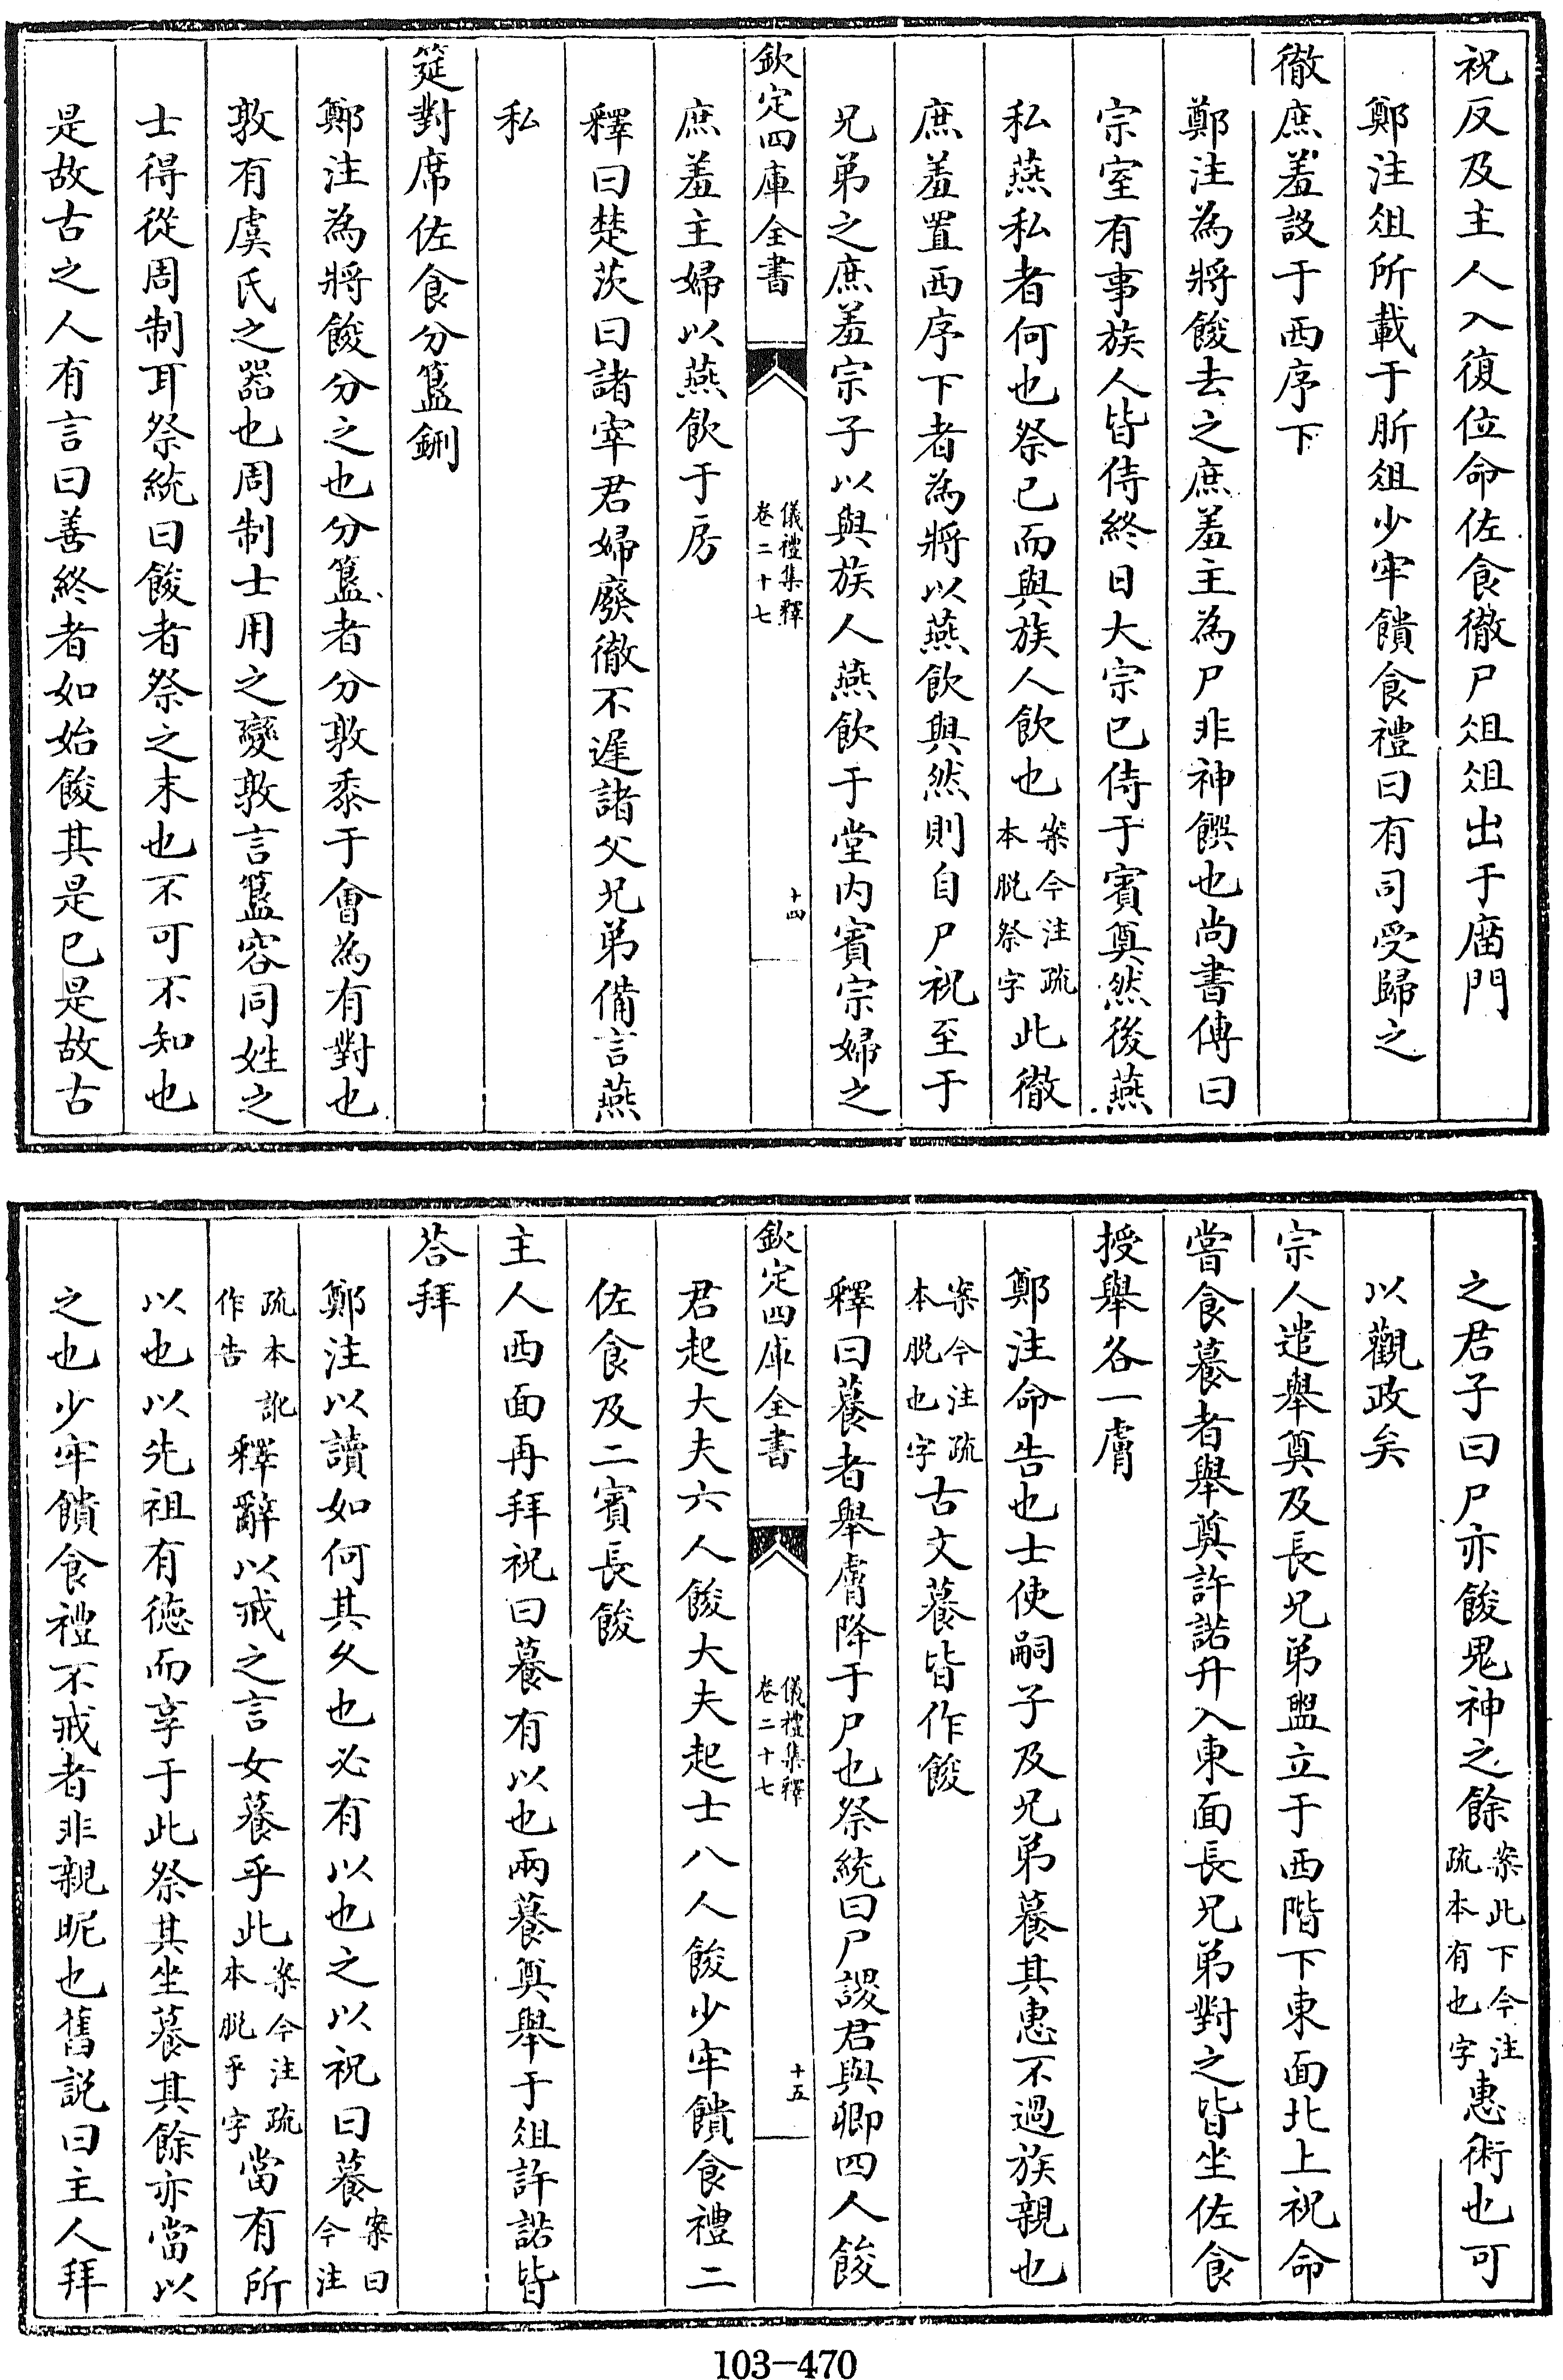 祝反及主人入復位命佐食徹尸俎俎出于廟門
鄭注俎所載于肵俎少牢饋食禮曰有司受歸之
徹庶羞設于西序下
鄭注為將餕去之庶羞主為尸非神饌也尚書傳曰
宗室有事族人皆侍終日大宗已侍于賓奠然後燕
私燕私者何也祭已而與族人飲也案今注疏本脱祭字此徹
庶羞置西序下者為將以燕飲與然則自尸祝至于
兄弟之庶羞宗子以與族人燕飲于堂内賓宗婦之
欽定四庫全書
儀禮集釋
卷二十七
十四
庶羞主婦以燕飲于房
釋曰楚茨曰諸宰君婦廢徹不遲諸父兄弟備言燕
私
筵對席佐食分簋鉶
鄭注為將餕分之也分簋者分敦黍于會為有對也
敦有虞氏之器也周制士用之變敦言簋容同姓之
士得從周制耳祭統曰餕者祭之末也不可不知也
是故古之人有言曰善終者如始餕其是已是故古
之君子曰尸亦餕鬼神之餘案此下今注疏本有也字惠術也可
以觀政矣
宗人遣舉奠及長兄弟盥立于西階下東面北上祝命
嘗食䕩者舉奠許諾升入東面長兄弟對之皆坐佐食
授舉各一膚
鄭注命告也士使嗣子及兄弟䕩其惠不過族親也
案今注疏本脱也字古文䕩皆作餕
釋曰䕩者舉膚降于尸也祭統曰尸謖君與卿四人餕
欽定四庫全書
儀禮集釋
卷二十七
十五
君起大夫六人餕大夫起士八人餕少牢饋食禮二
佐食及二賓長餕
主人西面再拜祝曰䕩有以也兩䕩奠舉于俎許諾皆
荅拜
鄭注以讀如何其久也必有以也之以祝曰䕩案曰今注
疏本訛作告釋辭以戒之言女䕩乎此案今注疏本脱乎字當有所
以也以先祖有德而享于此祭其坐䕩其餘亦當以
之也少牢饋食禮不戒者非親昵也舊説曰主人拜
103-470